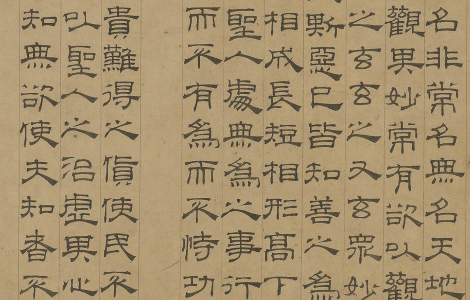 名非常名無名天地
觀其妙常有欲以觀
之玄玄之又玄眾妙
斯惡已皆知善之為
相成長短相形高下
聖人處無為之事行
而不有為而不恃功
貴難得之貨使民不
以聖人之治虛其心
知無欲使夫知者不